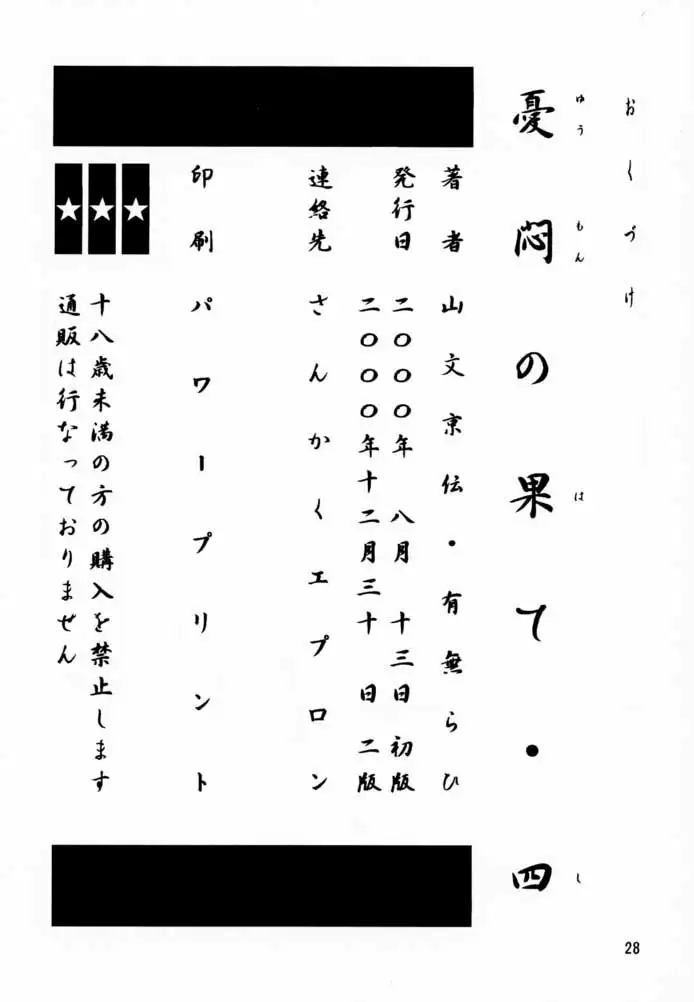 おくづけ
憂悶の果て・四
ゆうもん は し
著者 山文京伝・有無らひ
発行日 二〇〇〇年 八月 十三日 初版
二〇〇〇年十二月三十 日 二版
連絡先 さんかくエプロン
印刷 パワープリント
★★★
十八歳未満の方の購入を禁止します
通販は行なっておりません
28